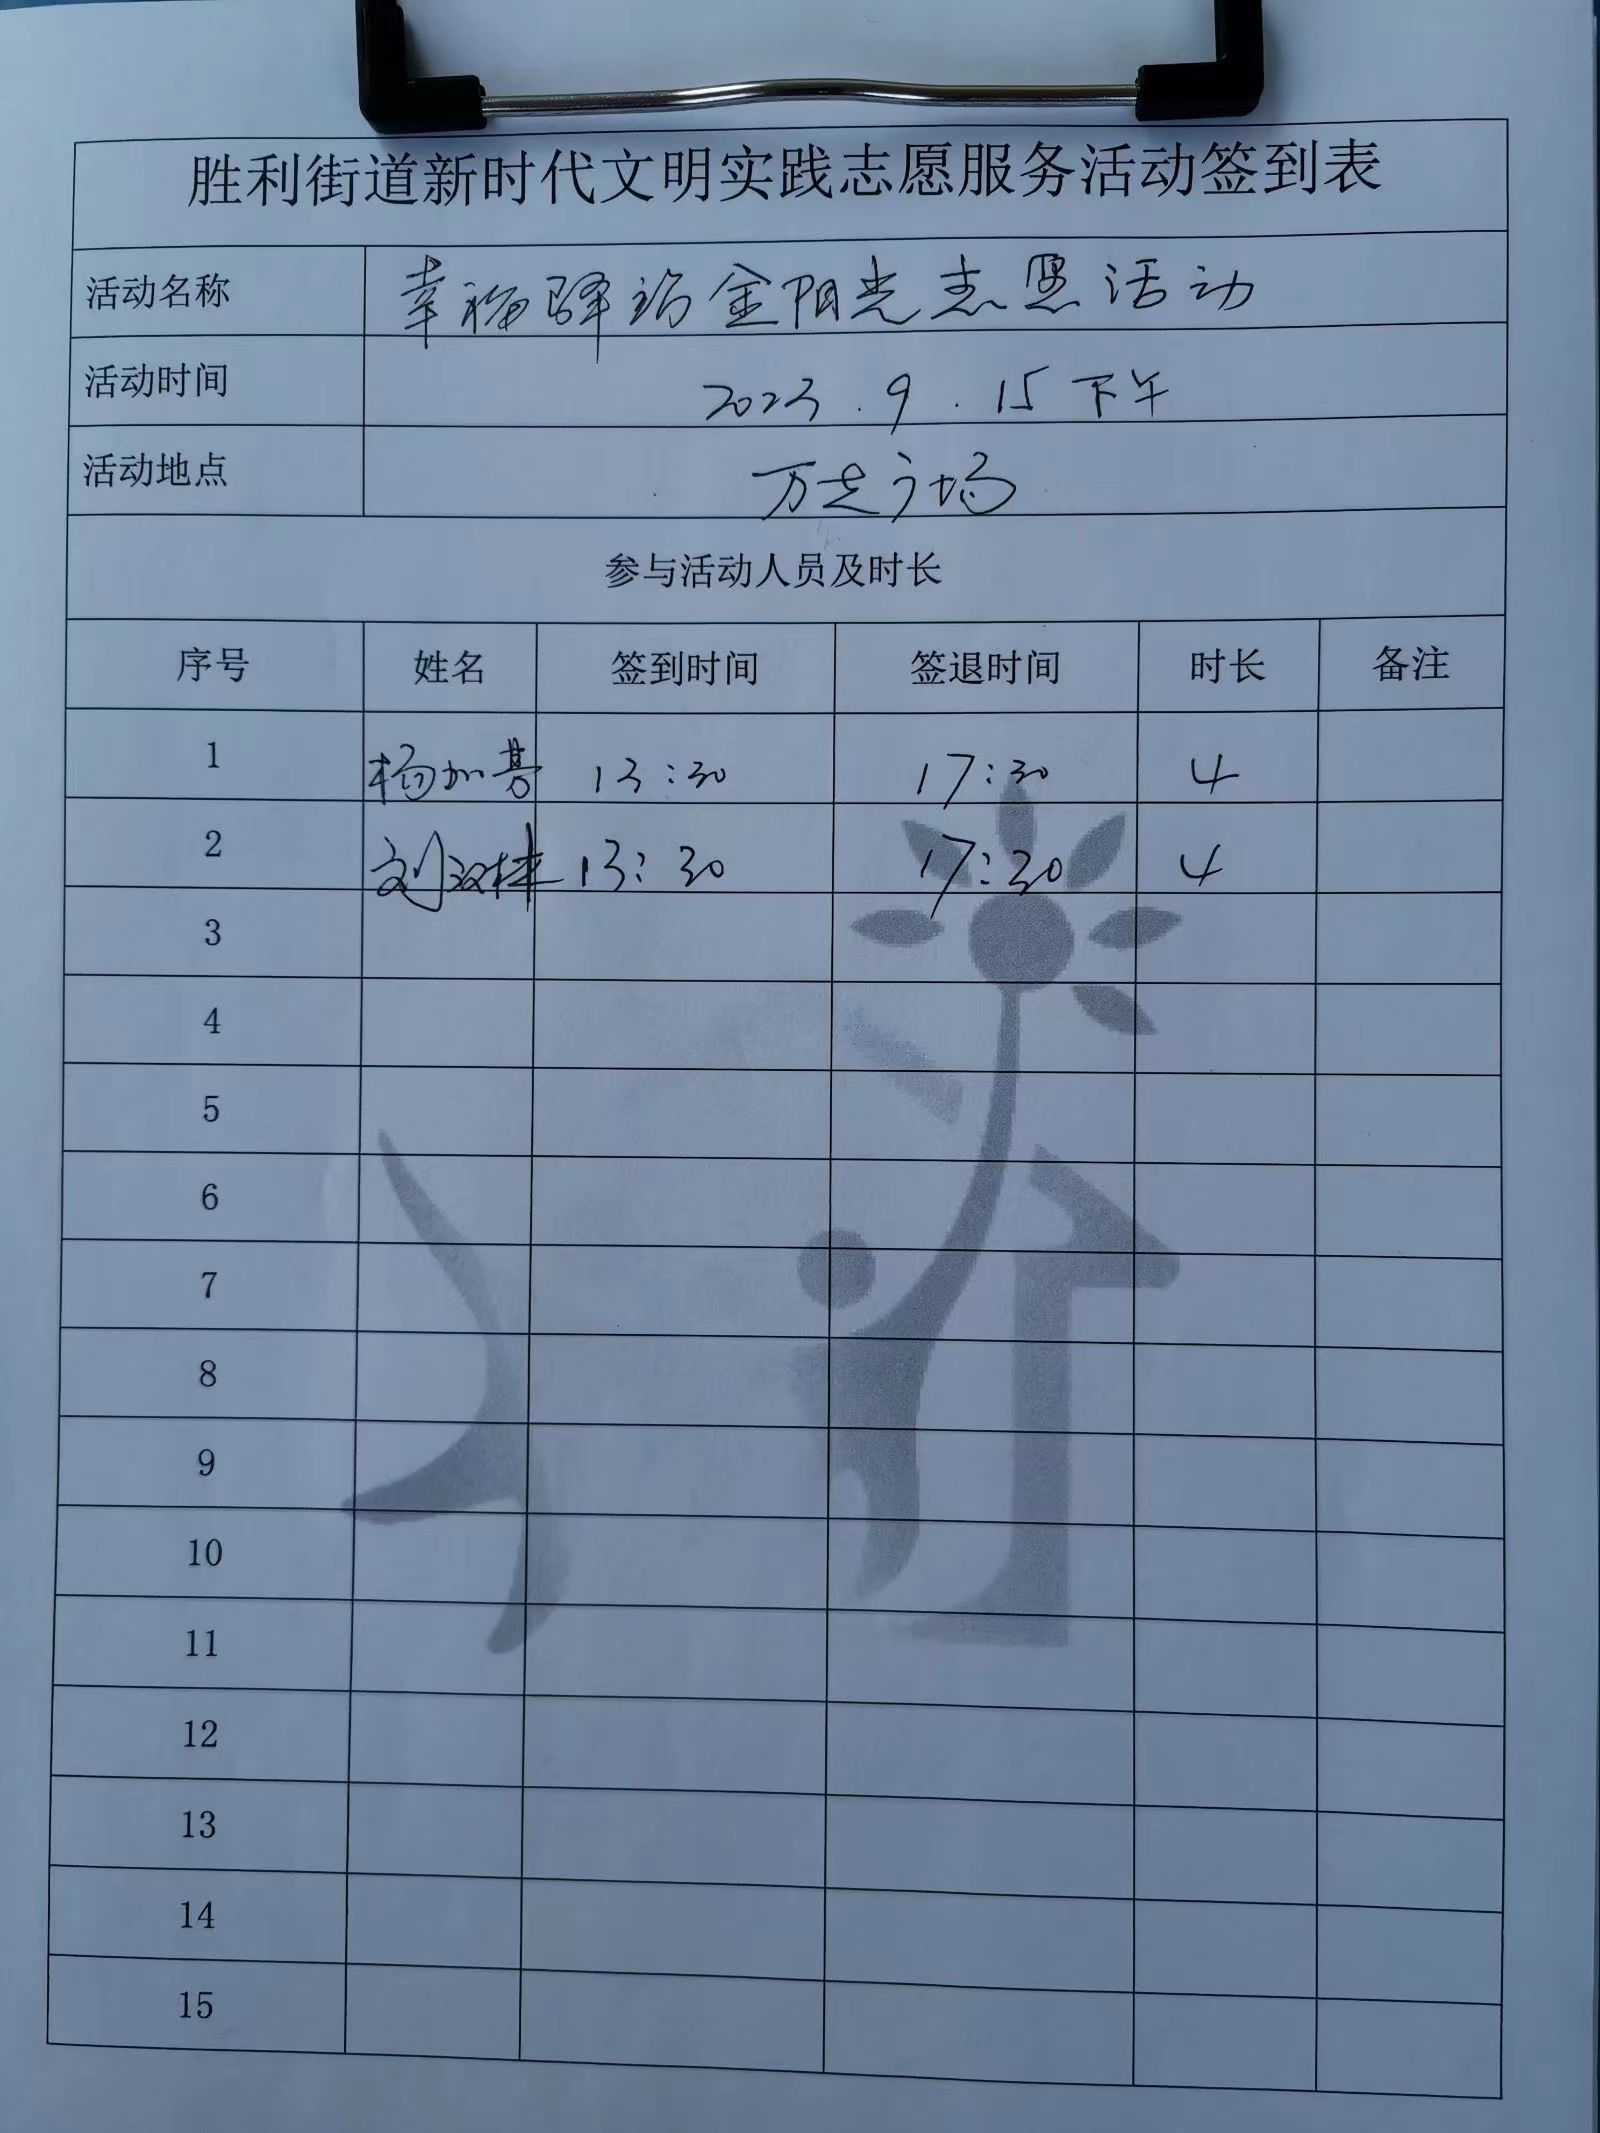 胜利街道新时代文明实践志愿服务活动签到表
活动名称 幸福驿站金阳光志愿活动
活动时间 2023.9.15下午
活动地点 万达广场
参与活动人员及时长
序号 姓名 签到时间 签退时间 时长 备注
1 杨加 13:30 17:30 4
2 刘 林 13:30 17:30 4
3
4
5
6
7
8
9
10
11
12
13
14
15